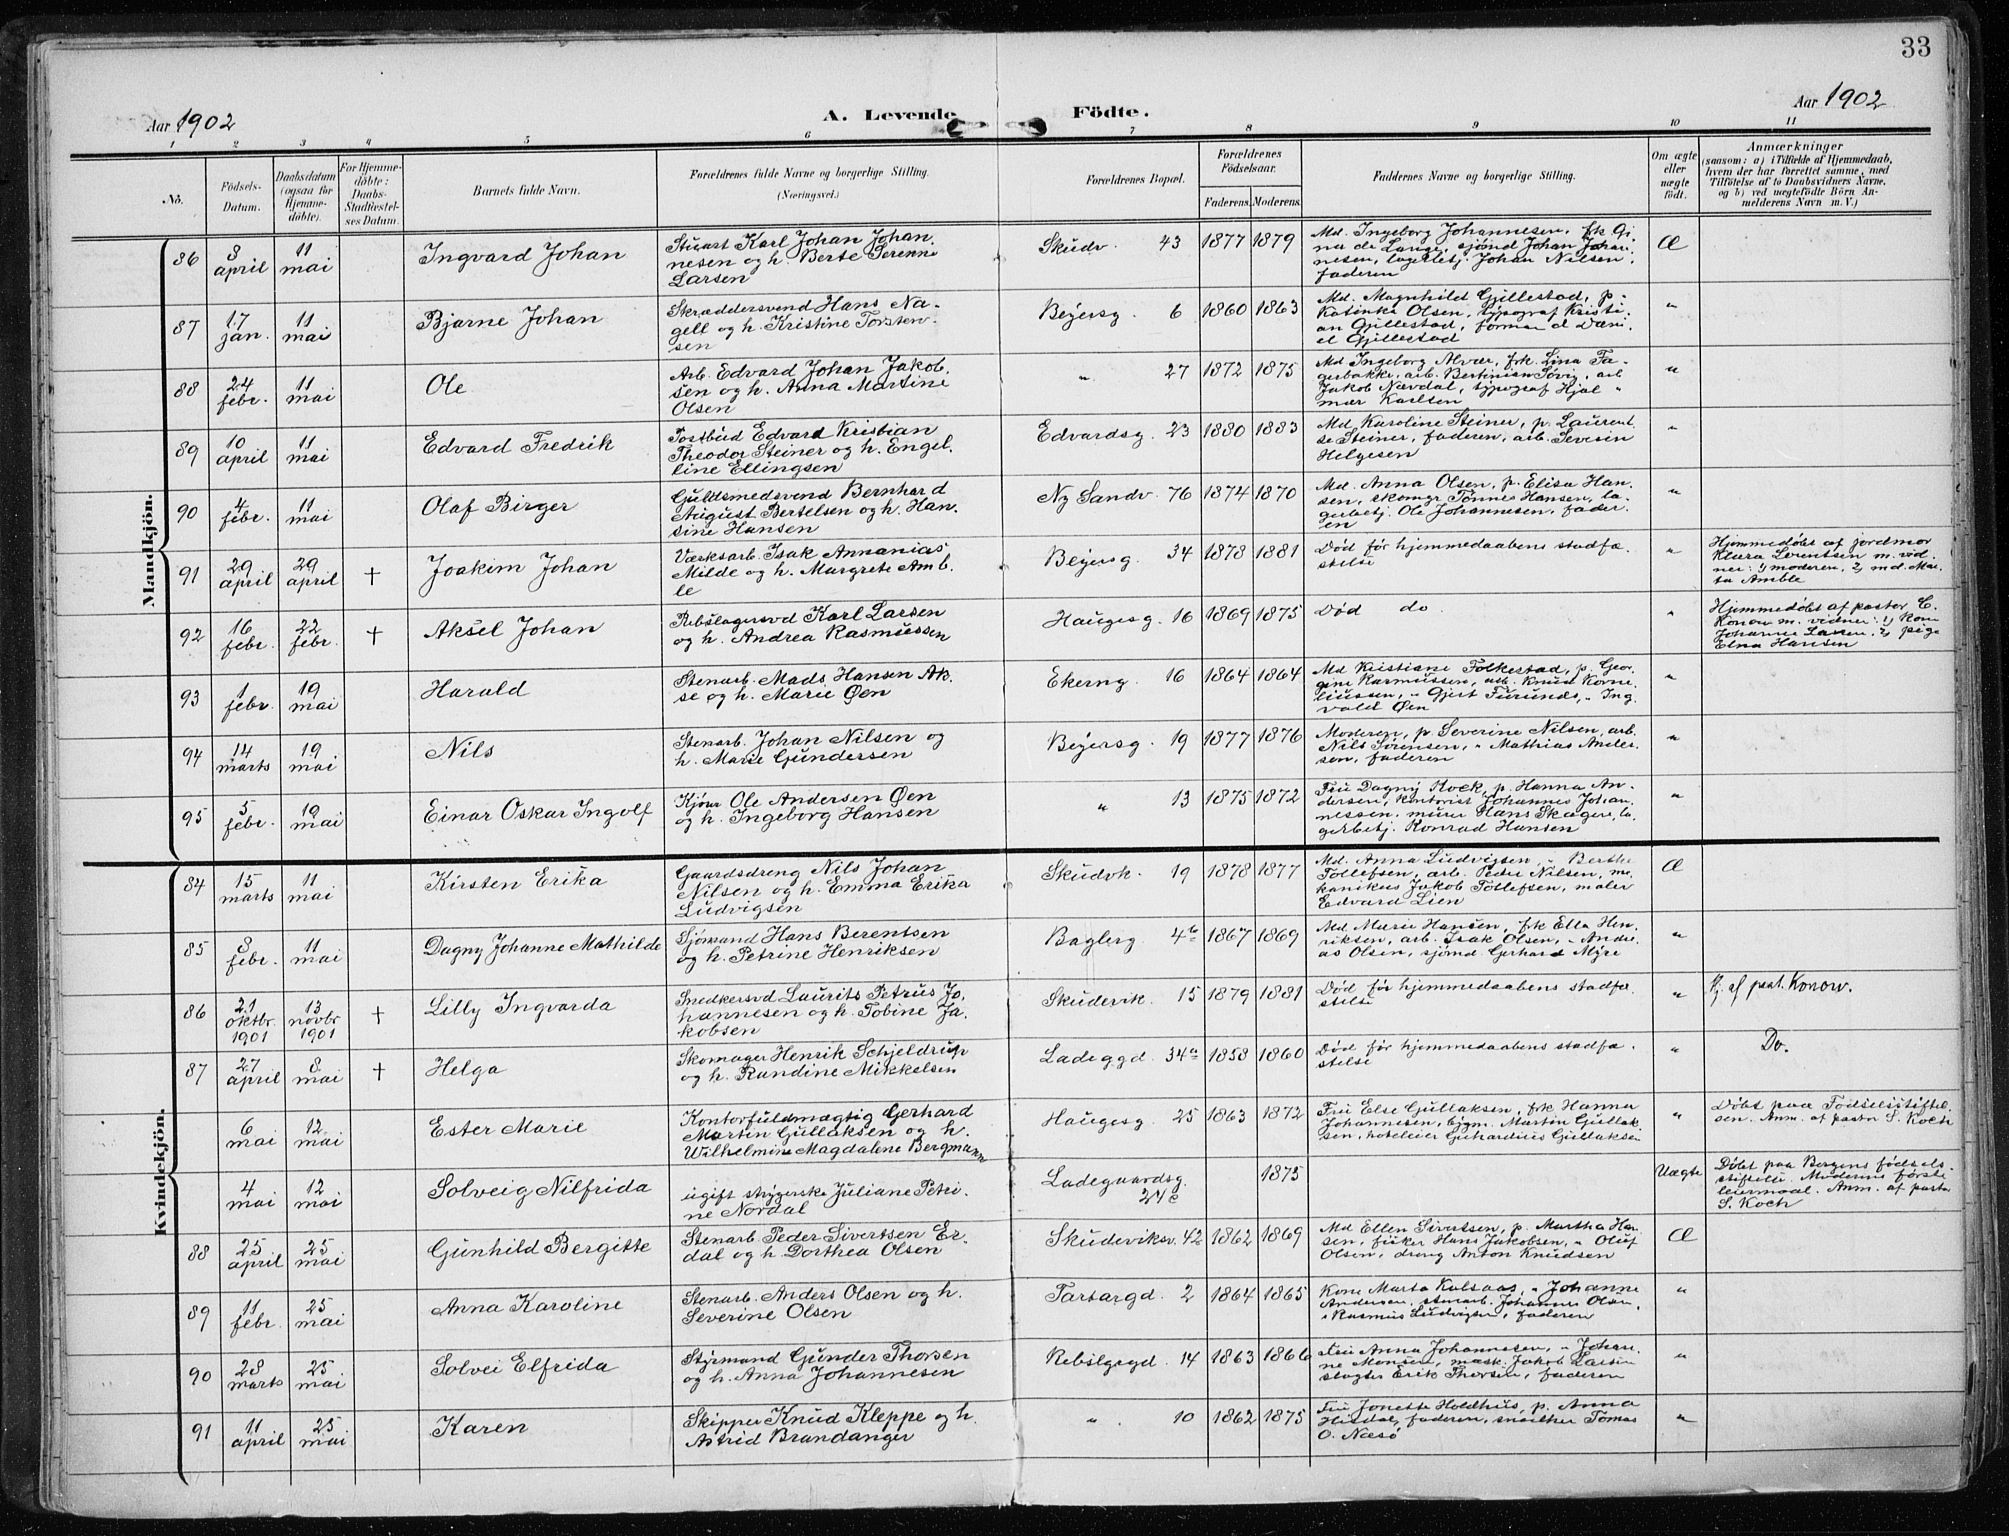 33
Aar 1902
A. Levende Födte.
Aar 1902
1 2 3 4 5 6 7 8 9 10 11
No.
Födsels-Datum.
Daabsdatum (ogsaa for Hjemme-döbte).
For Hjemme-döbte: Daabs-Stadfæstel-ses Datum.
Barnets fulde Navn.
Forældrenes fulde Navne og borgerlige Stilling.
(Næringsvei.)
Forældrenes Bopæl.
Forældrenes Födselsaar.
Faderens. Moderens.
Faddernes Navne og borgerlige Stilling.
Om ægte eller uægte födt.
Anmærkninger
(saasom: a) i Tilfælde af Hjemmedaab,
hvem der har forrettet samme, med
Tilföielse af to Daabsvidners Navne,
og b) ved uægtefödte Börn An-
melderens Navn m. V.)
Mandkjön.
86 3 april 11 mai Ingvard Johan
Stuert Karl Johan Johan-
nesen og h. Berte Serenne
Larsen
Skudv. 43 1877 1879
Md. Ingeborg Johannesen, frk Gi-
na de Lange, sjømd Johan Johan-
nesen, lagerbetj. Johan Nilsen,
faderen
Æ
87 17 jan. 11 mai Bjarne Johan
Skræddersvend Hans Na-
gell og h. Kristine Torsten-
sen
Beyersg. 6 1860 1863
Md. Magnhild Gjillestad, p.
Katinka Olsen, typograf Kristi-
an Gjillestad, formand Dani-
el Gjillestad
"
88 24 febr. 11 mai Ole
Arb. Edvard Johan Jakob-
sen og h. Anna Martine
Olsen
" 27 1872 1875
Md Ingeborg Alvær, frk. Lina Fa-
gerbakke, arb. Bertinius Søvig, arb
Jakob Nævdal, typograf Hjal-
mar Karlsen
"
89 10 april 11 mai Edvard Fredrik
Postbud Edvard Kristian
Theodor Steiner og h. Engel-
line Ellingsen
Edvardsg. 23 1880 1883
Md Karoline Steiner, p. Laurent-
se Steiner, faderen, arb. Severin
Helgesen
"
90 4 febr. 11 mai Olaf Birger
Guldsmedsvend Bernhard
August Bertelsen og h. Han-
sine Hansen
Ny Sandv. 76 1874 1870
Md. Anna Olsen, p. Elisa Han-
sen, skomgr Tønnes Hansen, la-
gerbetj. Ole Johannesen, fader-
en
"
91 29 april 29 april † Joakim Johan
Værksarb. Isak Annanias
Milde og h. Margrete Amb-
le
Beyersg. 34 1878 1881
Død før hjemmedaabens stadfæ-
stelse
"
Hjemmedøbt af jordmor
Klara Lorentsen m. vid-
ner: 1) moderen, 2) md. Mar-
ta Amble
92 16 febr. 22 febr. † Aksel Johan
Rebslagersvd Karl Larsen
og h. Andrea Rasmussen
Haugesg. 16 1869 1875
Død do
"
Hjemmedøbt af pastor C.
Konow m. vidner: 1) kone
Johanne Larsen, 2) pige
Elna Hansen
93 1 febr. 19 mai Harald
Stenarb. Mads Hansen Ak-
se og h. Marie Øen
Ekerng. 16 1864 1864
Md Kristiane Folkestad, p. Geor-
gine Rasmussen, arb. Knud Korne-
liussen, " Gjert Furunes, " Ing-
vald Øen
"
94 14 marts 19 mai Nils
Stenarb. Johan Nilsen og
h. Marie Gundersen
Beyersg. 19 1877 1876
Moderen, p Severine Nilsen, arb.
Nils Sørensen, " Mathias Ander-
sen, faderen
"
95 5 febr. 19 mai Einar Oskar Ingolf
Kjører Ole Andersen Øen
og h. Ingeborg Hansen
" 13 1875 1872
Fru Dagny Kock, p. Hanna An-
dersen, kontorist Johannes Johan-
nessen, murer Hans Skagen, la-
gerbetj. Konrad Hansen
"
Kvindekjön.
84 15 marts 11 mai Kirsten Erika
Gaardsdreng Nils Johan
Nilsen og h. Emma Erika
Ludvigsen
Skudvk. 19 1878 1877
Md. Anna Ludvigsen, " Berthe
Tollefsen, arb. Peder Nilsen, me-
kanikus Jakob Tollefsen, maler
Edvard Lien
Æ
85 3 febr. 11 mai Dagny Johanne Mathilde
Sjømand Hans Berentsen
og h. Petrine Henriksen
Baglerg. 4b 1867 1869
Md Marie Hansen, frk Ella Hen-
riksen, arb. Isak Olsen, " Andre-
as Olsen, sjømd. Gerhard Myre
"
86 21 oktbr 1901 13 novbr 1901 † Lilly Ingvarda
Snedkersvd Laurits Petrus Jo-
hannesen og h. Tobine Ja-
kobsen
Skudevik. 15 1879 1881
Død før hjemmedaabens stadfæ-
stelse
"
Hj. af past. Konow.
87 27 april 8 mai † Helga
Skomager Henrik Schjeldrup
og h. Randine Mikkelsen
Ladeggd. 34a 1858 1860
Død før hjemmedaabens stadfæ-
stelse
"
Do.
6 mai 12 mai Ester Marie
Kontorfuldmægtig Gerhard
Martin Gullaksen og h.
Wilhelmine Magdalene Bergmann
Haugesg. 25 1863 1872
Fru Else Gullaksen, frk Hanna
Johannesen, bygm. Martin Gullak-
sen, hoteleier Gerhardius Gullaksen
"
Døbt paa Fødselsstiftel-
sen. Anm. af pastor S. Koch
4 mai 12 mai Solveig Nilfrida
ugift strygerske Juliane Petri-
ne Nordal
Ladegaardsg. 1875
Uægte
Døbt paa Bergens fødsels-
stiftelse. Moderens første
leiermaal. Anm. af pastor
S. Koch
88 25 april 25 mai Gunhild Bergitte
Stenarb. Peder Sivertsen Er-
dal og h. Dorthea Olsen
Skudeviksv. 42 1862 1869
Md Ellen Sivertsen, p. Martha Han-
sen, fisker Hans Jakobsen, " Oluf
Olsen, dreng Anton Knudsen
Æ
89 11 febr. 25 mai Anna Karoline
Stenarb. Anders Olsen og h.
Severine Olsen
Tartargd. 2 1864 1865
Kone Marta Kalsaas, " Johanne
Andersen, stenarb. Johannes Olsen,
" Rasmus Ludvigsen, faderen
"
90 28 marts 25 mai Solvei Elfrida
Styrmand Gunder Thorsen
og h. Anna Johannesen
Rebslgrgd. 14 1863 1866
Fru Anna Johannesen, " Johan-
ne Monsen, mask. Jakob Larsen
slagter Erik Thorsen, faderen
"
91 11 april 25 mai Karen
Skipper Knud Kleppe og h.
Astrid Brandanger
" 10 1862 1875
Fru Jonette Holdhus, p. Anna
Hisdal, faderen, snedker Tomas
O. Næsø
"